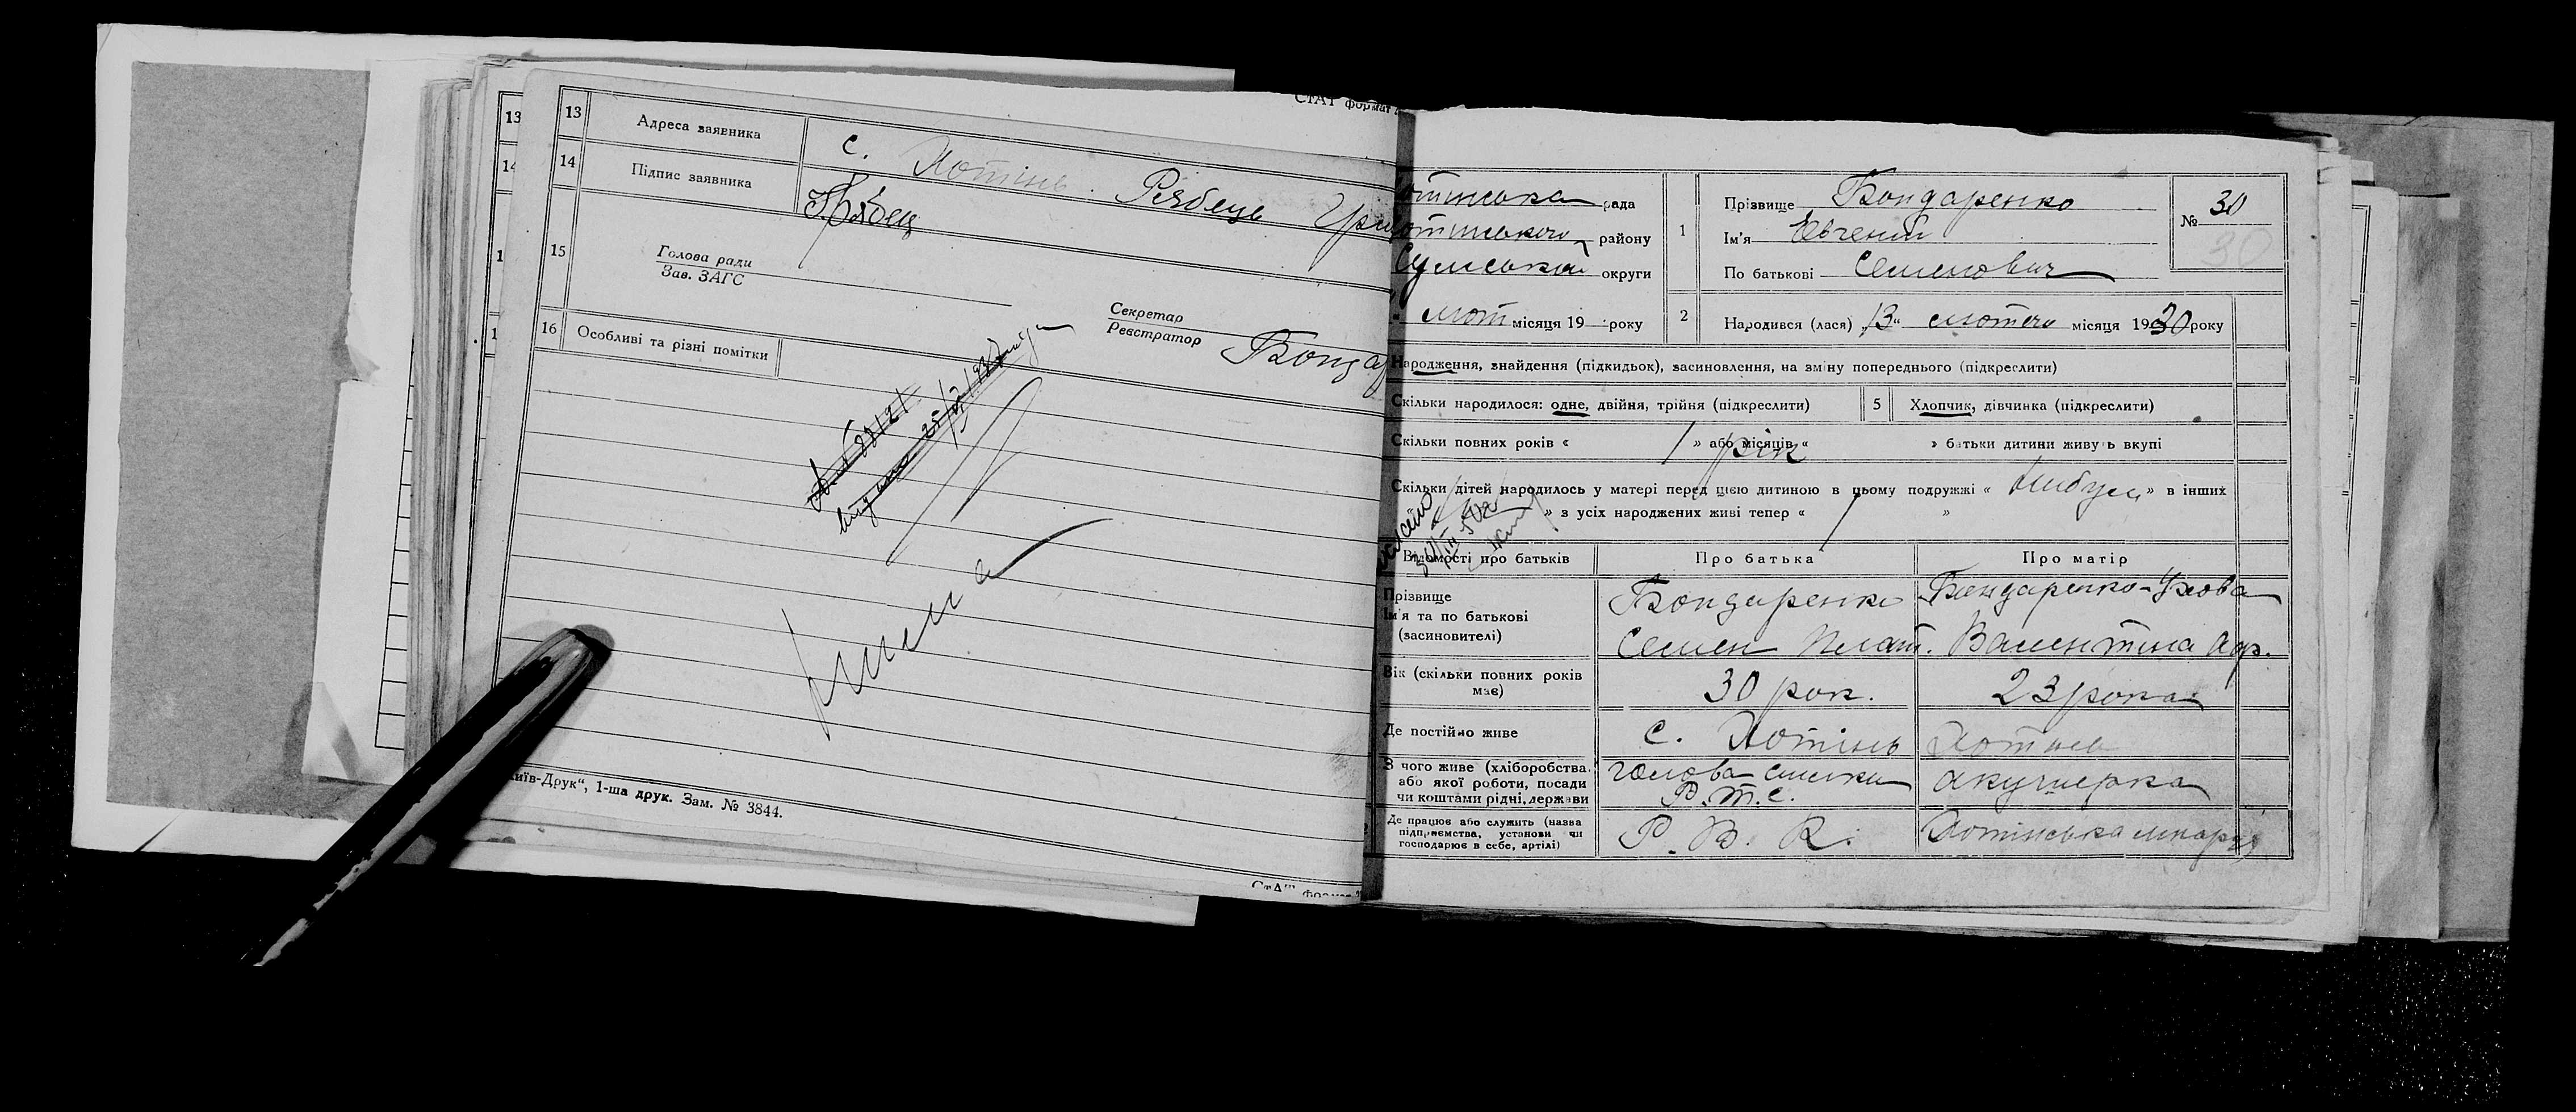 13
14
13 Адреса заявника с. Хотінь. Рябець
14 Підпис заявника Г. Рябец
15 Голова ради
Зав. ЗАГС
Секретар
Реєстратор
16 Особливі та різні помітки
иїв-Друк“, 1-ша друк. Зам. № 3844.
СтАТ формат
отинська рада
отинського району
Сумської округи
лют місяця 19 року
1 Прізвище Бондаренко
Ім'я Евгений
По батькові Семенович
№ 30
30
2 Народився (лася) „13“ лютого місяця 1930 року
Народження, знайдення (підкидьок), засиновлення, на зміну попереднього (підкреслити)
Скільки народилося: одне, двійня, трійня (підкреслити) 5 Хлопчик, дівчинка (підкреслити)
Скільки повних років « 1 » або місяців « рік » батьки дитини живуть вкупі
Скільки дітей народилось у матері перед цією дитиною в цьому подружжі « » в інших
» з усіх народжених живі тепер « »
Відомості про батьків Про батька Про матір
Прізвище
Ім'я та по батькові
(засновителі)
Бондаренко
Семен Плат.
Бондаренко-
Валентина Адр.
Вік (скільки повних років
має) 30 рок. 23 рока
Де постійно живе с. Хотінь Хотінь
З чого живе (хліборобства,
або якої роботи, посади
чи коштами рідні, держави
голова спілки
Р.т.с.
акушерка
Де працює або служить (назва
підприємства, установи чи
господарює в себе, артілі)
Р. В. К.
Хотінська лікарня